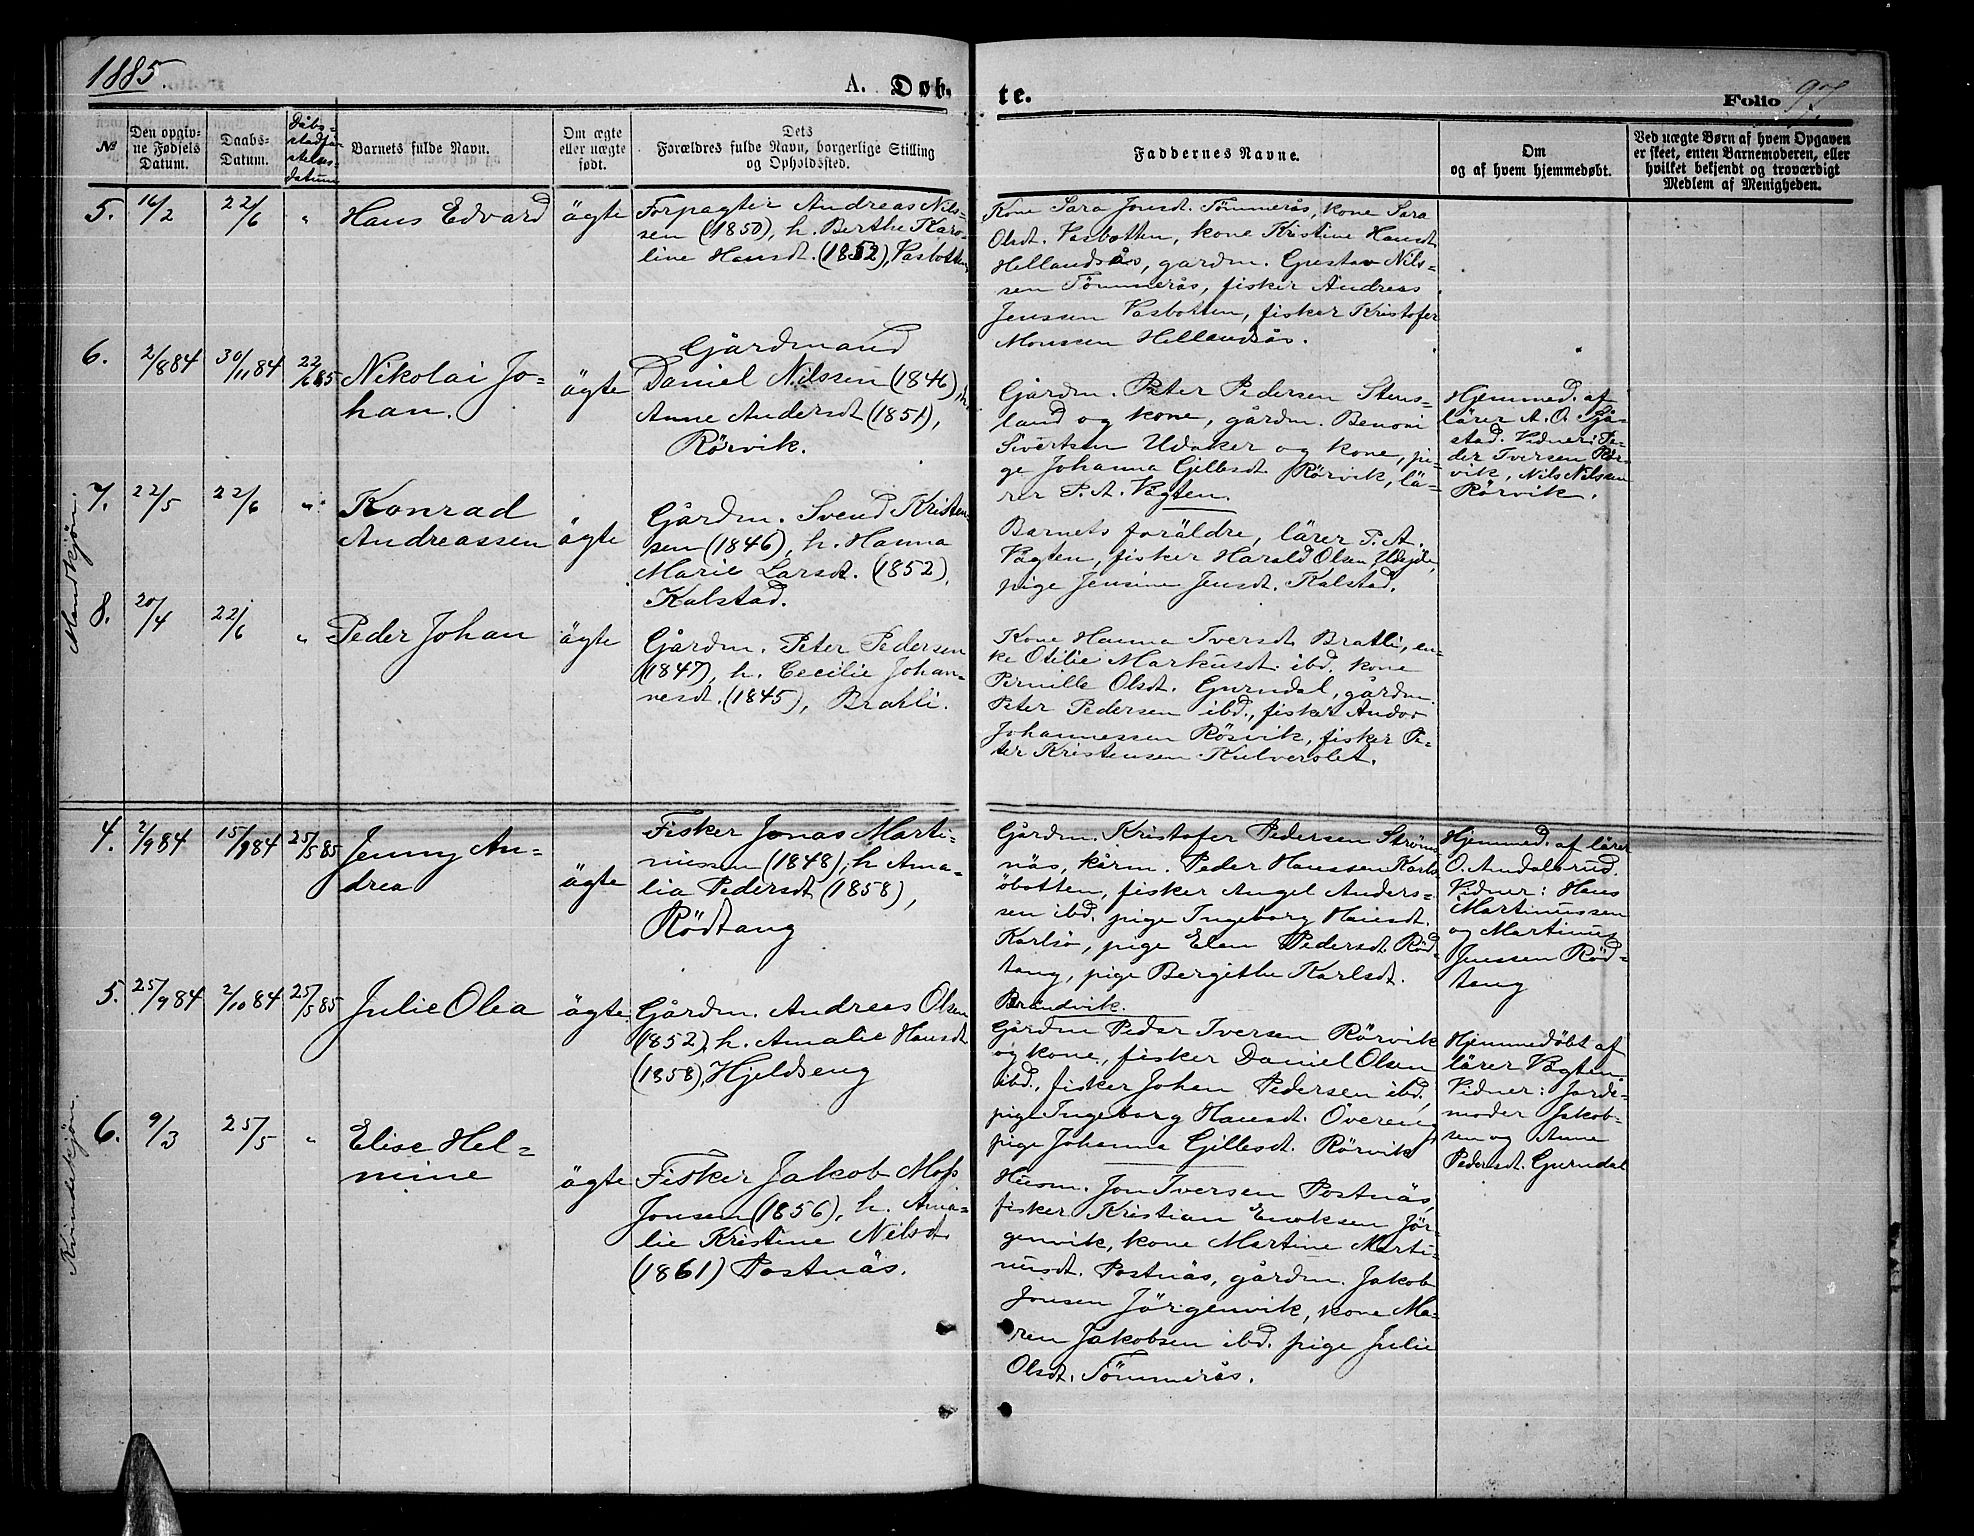 1885.
A. Døb-
te.
Folio 97.
№
Den opgiv-
ne Fødsels
Datum.
Daabs-
Datum.
Dåbs-
stadfæ-
stelses-
datum
Barnets fulde Navn.
Om ægte
eller uægte
født.
Dets
Forældres fulde Navn, borgerlige Stilling
og Opholdssted.
Faddernes Navne.
Om
og af hvem hjemmedøbt.
Ved uægte Børn af hvem Opgaven
er skeet, enten Barnemoderen, eller
hvilket bekjendt og troværdigt
Medlem af Menigheden.
Mandkjøn.
5.
16/2
22/6
"
Hans Edvard
ägte
Forpagter Andreas Nils-
sen (1850), h. Berthe Karo-
line Hansdt. (1852), Vasbotten
Kone Sara Jonsdt. Tömmerås, kone Sara
Olsdt. Vasbotten, kone Kristine Hansdt.
Hellandsås, gårdm. Gustav Nils-
sen Tömmerås, fisker Andreas
Jenssen Vasbotten, fisker Kristofer
Monssen Hellandsås.
6.
2/8 84
30/11 84
22/6 85
Nikolai Jo-
han.
ägte
Gårdmand
Daniel Nilssen (1846), h.
Anne Andersdt (1851),
Rörvik.
Gårdm. Peter Pedersen Stens-
land og kone, gårdm. Benoni
Sivertsen Udaker og kone, pi-
ge Johanna Gillesdt. Rörvik, lä-
rer P. A. Vagten.
Hjemmed. af
lärer A. O. Sjå-
stad. Vidner: Pe-
der Iversen Rör-
vik, Nils Nilssen
Rörvik.
7.
22/5
22/6
"
Konrad
Andreassen
ägte
Gårdm. Svend Kristen-
sen (1846), h. Hanna
Marie Larsdt. (1852),
Kalstad.
Barnets foräldre, lärer P. A.
Vagten, fisker Harald Olsen
pige Jensine Jensdt. Kalstad.
8.
20/4
22/6
"
Peder Johan
ägte
Gårdm. Peter Pedersen
(1847), h. Cecilie Johan-
nesdt. (1845), Bratli.
Kone Hanna Iversdt. Bratli, en-
ke Otilie Markusdt. ibd. kone
Pernille Olsdt. Gurndal, gårdm
Peter Pedersen ibd., fisker Andor
Johannessen Rösvik, fisker Pe-
ter Kristensen Kulverslet.
Kvindekjön.
4.
2/9 84
15/9 84
25/5 85
Jenny An-
drea
ägte
Fisker Jonas Marti-
nussen (1848), h. Ama-
lia Pedersdt (1858),
Rödtang
Gårdm. Kristofer Pedersen Ströms-
näs, kårm. Peder Hanssen Karls-
öbotten, fisker Angel Anders-
sen ibd. pige Ingeborg Hansdt.
Karlsö, pige Elen Pedersdt. Röd-
tang, pige Bergithe Karlsdt.
Brandvik.
Hjemmed. af lärer
O. Andalsrud.
Vidner: Hans
Martinussen
og Martinus
Jenssen Röd-
teng
5.
25/9 84
2/10 84
25/5 85
Julie Olea
ägte
Gårdm. Andreas Olsen
(1852), h. Amalie Hansdt
(1858), Hjeldseng
Gårdm Peder Iversen Rörvik
og kone, fisker Daniel Olsen
ibd., fisker Johan Pedersen ibd.,
pige Ingeborg Hansdt. Övereng
pige Johanna Gillesdt. Rörvik
Hjemmedöbt af
lärer Vagten
Vidner: Jorde-
moder Jakob-
sen og Anne
Pedersdt. Gurndal
6.
9/3
25/5
"
Elise Hel-
mine
ägte
Fisker Jakob Moss
Jonsen (1856), h. Ama-
lie Kristine Nilsdt.
(1861) Postnäs.
Husm. Jon Iversen Postnäs,
fisker Kristian Enoksen Jör-
genvik, kone Martine Marti-
nusdt. Postnäs, gårdm. Jakob
Jonsen Jörgenvik, kone Ma-
ren Jakobsen ibd. pige Julie
Olsdt. Tömmerås.